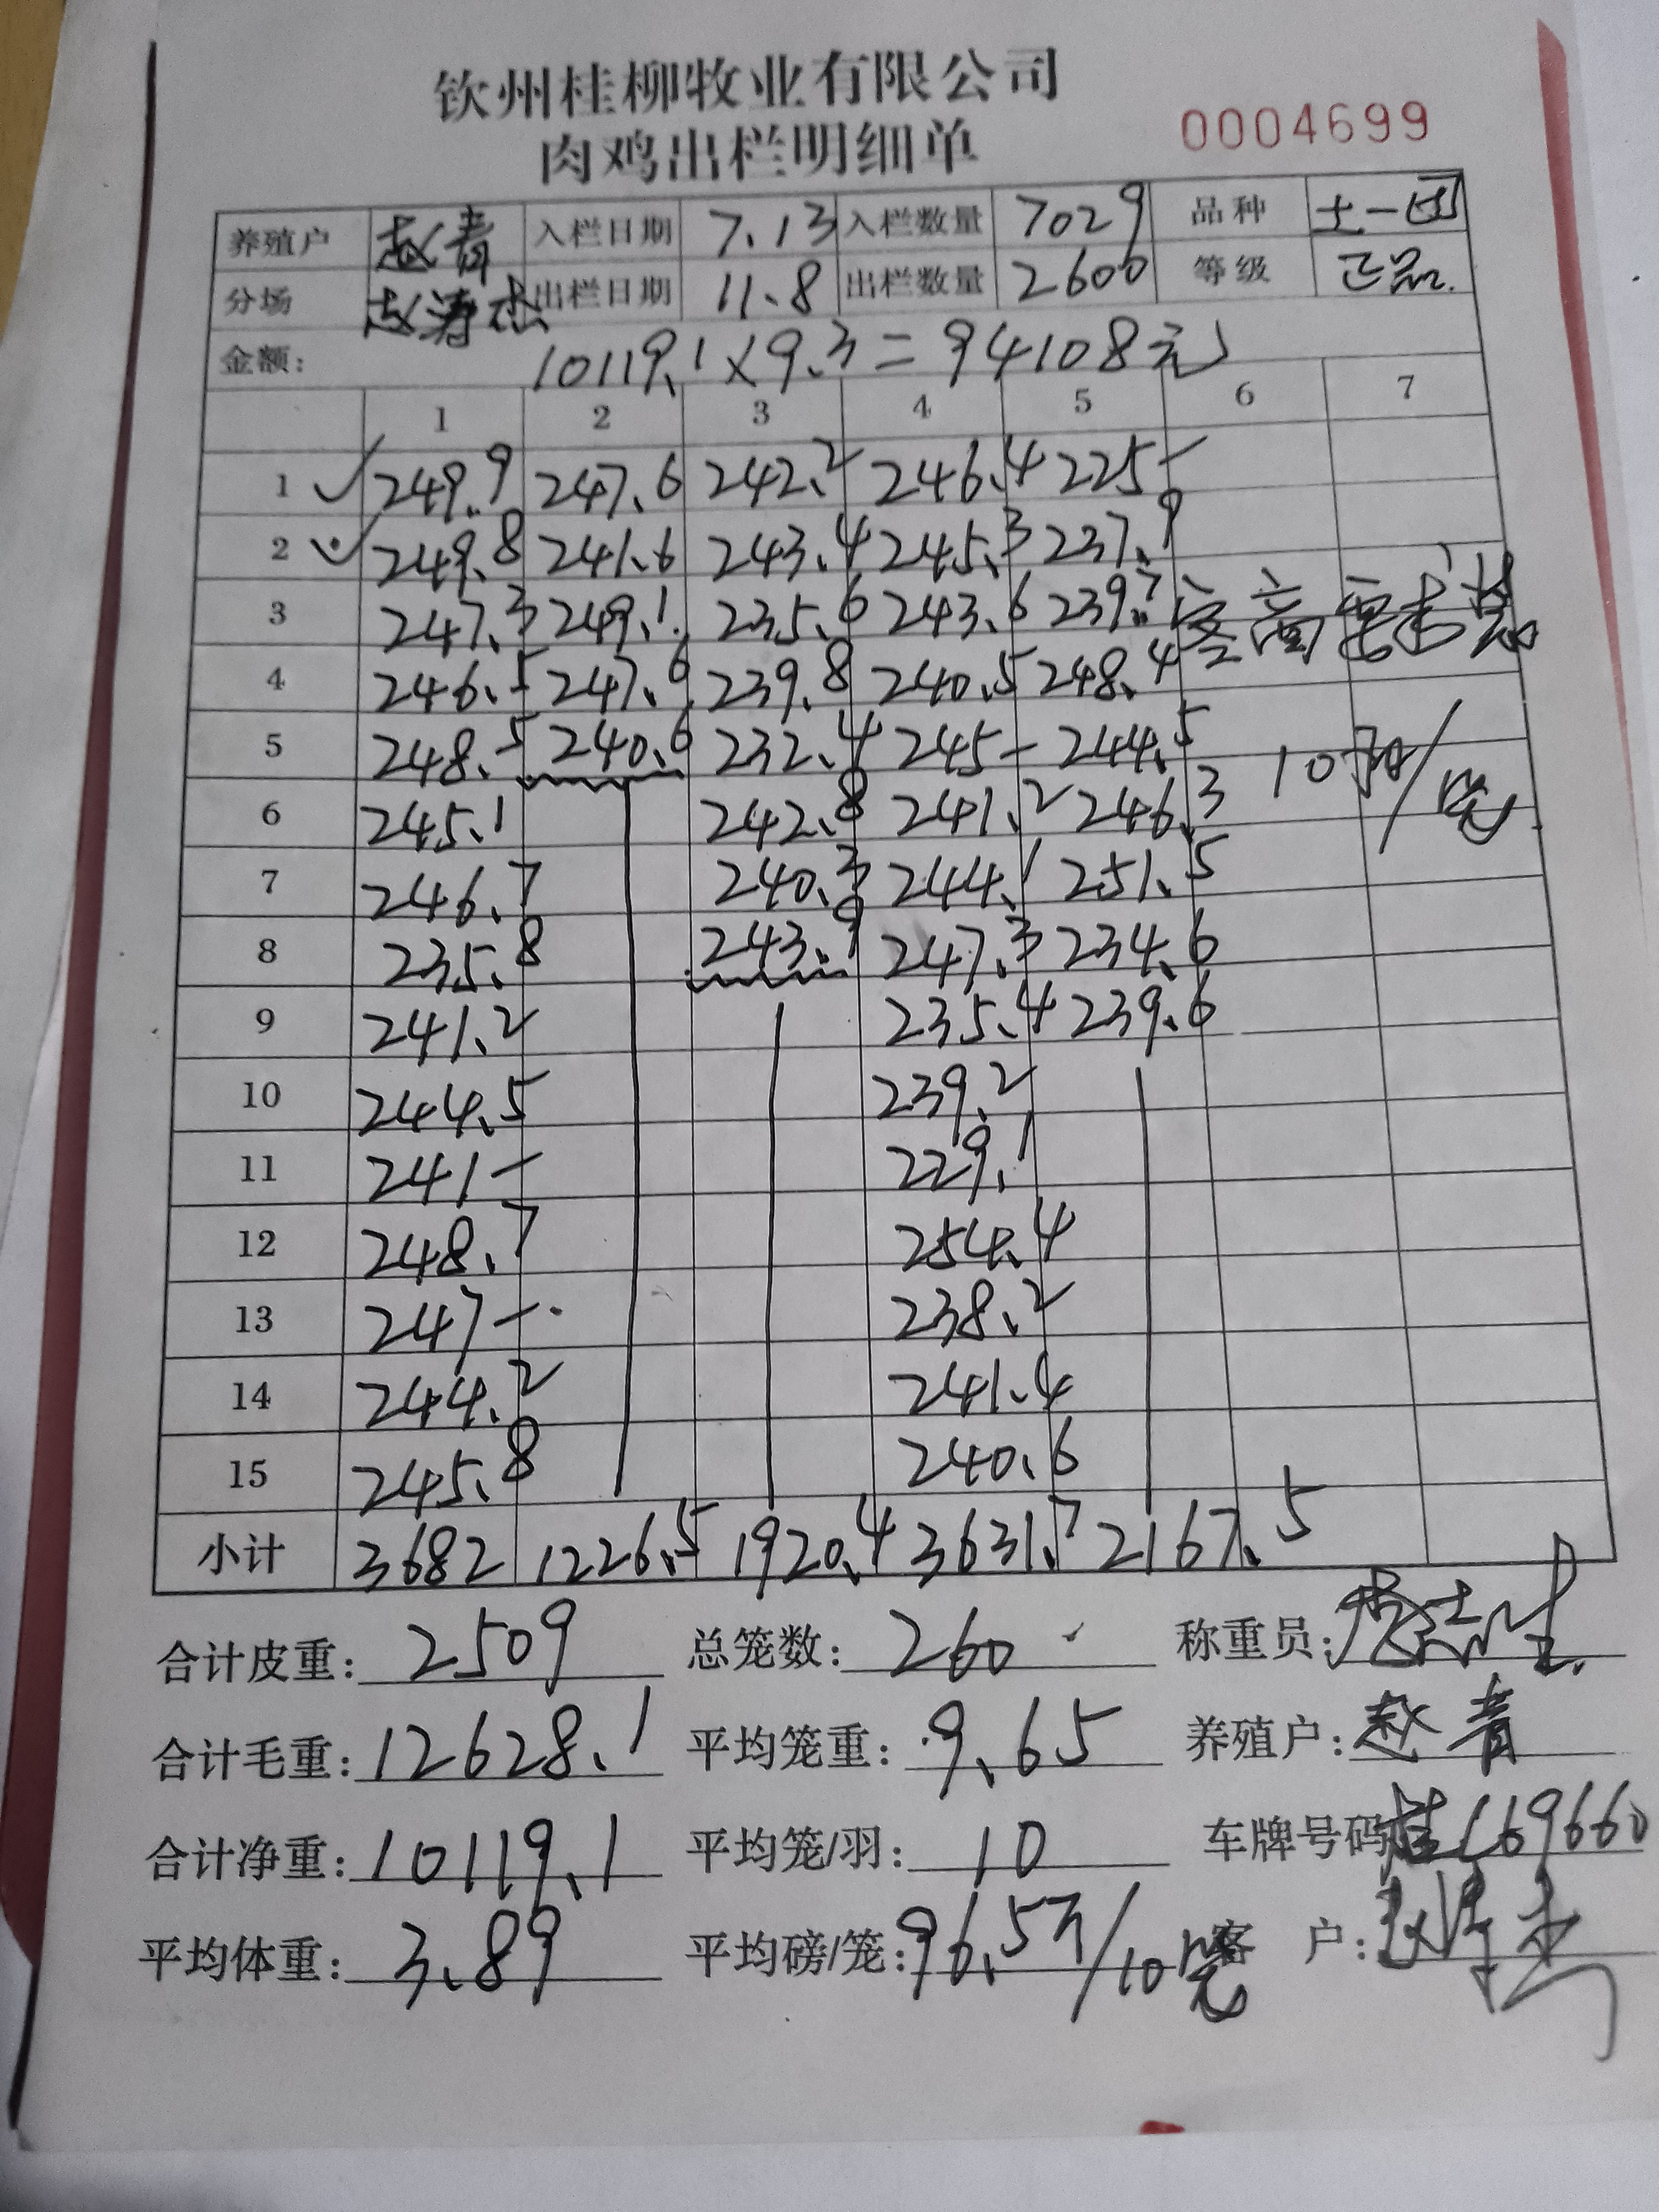 钦州桂柳牧业有限公司
肉鸡出栏明细单 0004699
养殖户 赵青 入栏日期 7.13 入栏数量 7029 品种 土一
分场 赵涛杰 出栏日期 11.8 出栏数量 2600 等级 正品.
金额: 10119.1×9.3=94108元
1 2 3 4 5 6 7
1 249.9 247.6 242.2 246.4 225-
2 249.8 241.6 243.4 245.3 237.9
3 247.3 249.1 235.6 243.6 239.7 要求装
4 246.5 247.6 239.8 240.5 248.4
5 248.5 240.6 232.4 245- 244.5 10羽/笼
6 245.1 242.8 241.2 246.3
7 246.7 240.3 244.1 251.5
8 235.8 243.9 247.3 234.6
9 241.2 235.4 239.6
10 244.5 239.2
11 241- 229.1
12 248.7 254.4
13 247- 238.2
14 244.2 241.4
15 245.8 240.6
小计 3682 1226.5 1920.4 3631.7 2167.5
合计皮重: 2509 总笼数: 260 称重员:
合计毛重: 12628.1 平均笼重: 9.65 养殖户: 赵青
合计净重: 10119.1 平均笼/羽: 10 车牌号码 桂C69660
平均体重: 3.89 平均磅/笼: 96.5斤/10笼 客户: